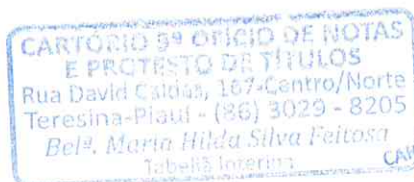 CARTÓRIO 5º OFÍCIO DE NOTAS
E PROTESTO DE TÍTULOS
Rua David Caldas, 167-Centro/Norte
Teresina-Piauí - (86) 3029 - 8205
Belª. Maria Hilda Silva Feitosa
Tabeliã Interina
CAR